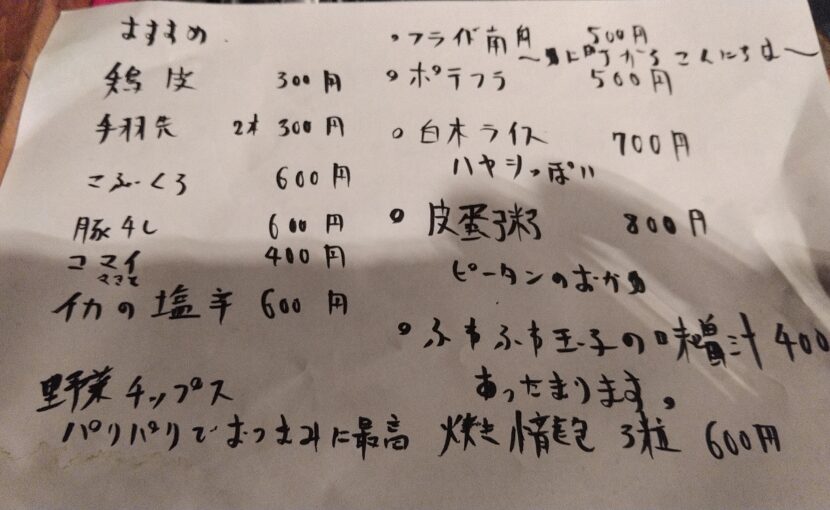 おすすめ
鶏皮 300円
手羽先 2本 300円
こぶくろ 600円
豚 600円
コマイ 400円
イカの塩辛 600円
野菜チップス
パリパリでおつまみに最高
○フライド南瓜 500円
からこんにちは〜
○ポテフラ 500円
○白木ライス 700円
ハヤシっぽい
○皮蛋粥 800円
ピータンのおかゆ
○ふわふわ玉子の味噌汁 400
あったまります。
焼き 3粒 600円